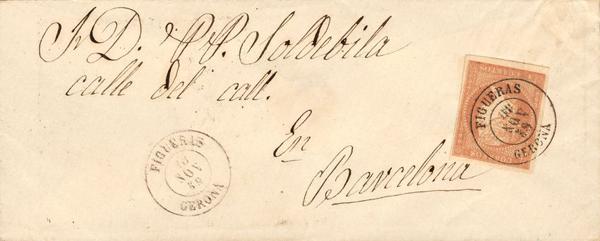 Sr. D. P. P. Soldebila
calle del call.
En
Barcelona
FIGUERAS
NOV
GERONA
FIGUERAS
NOV
GERONA